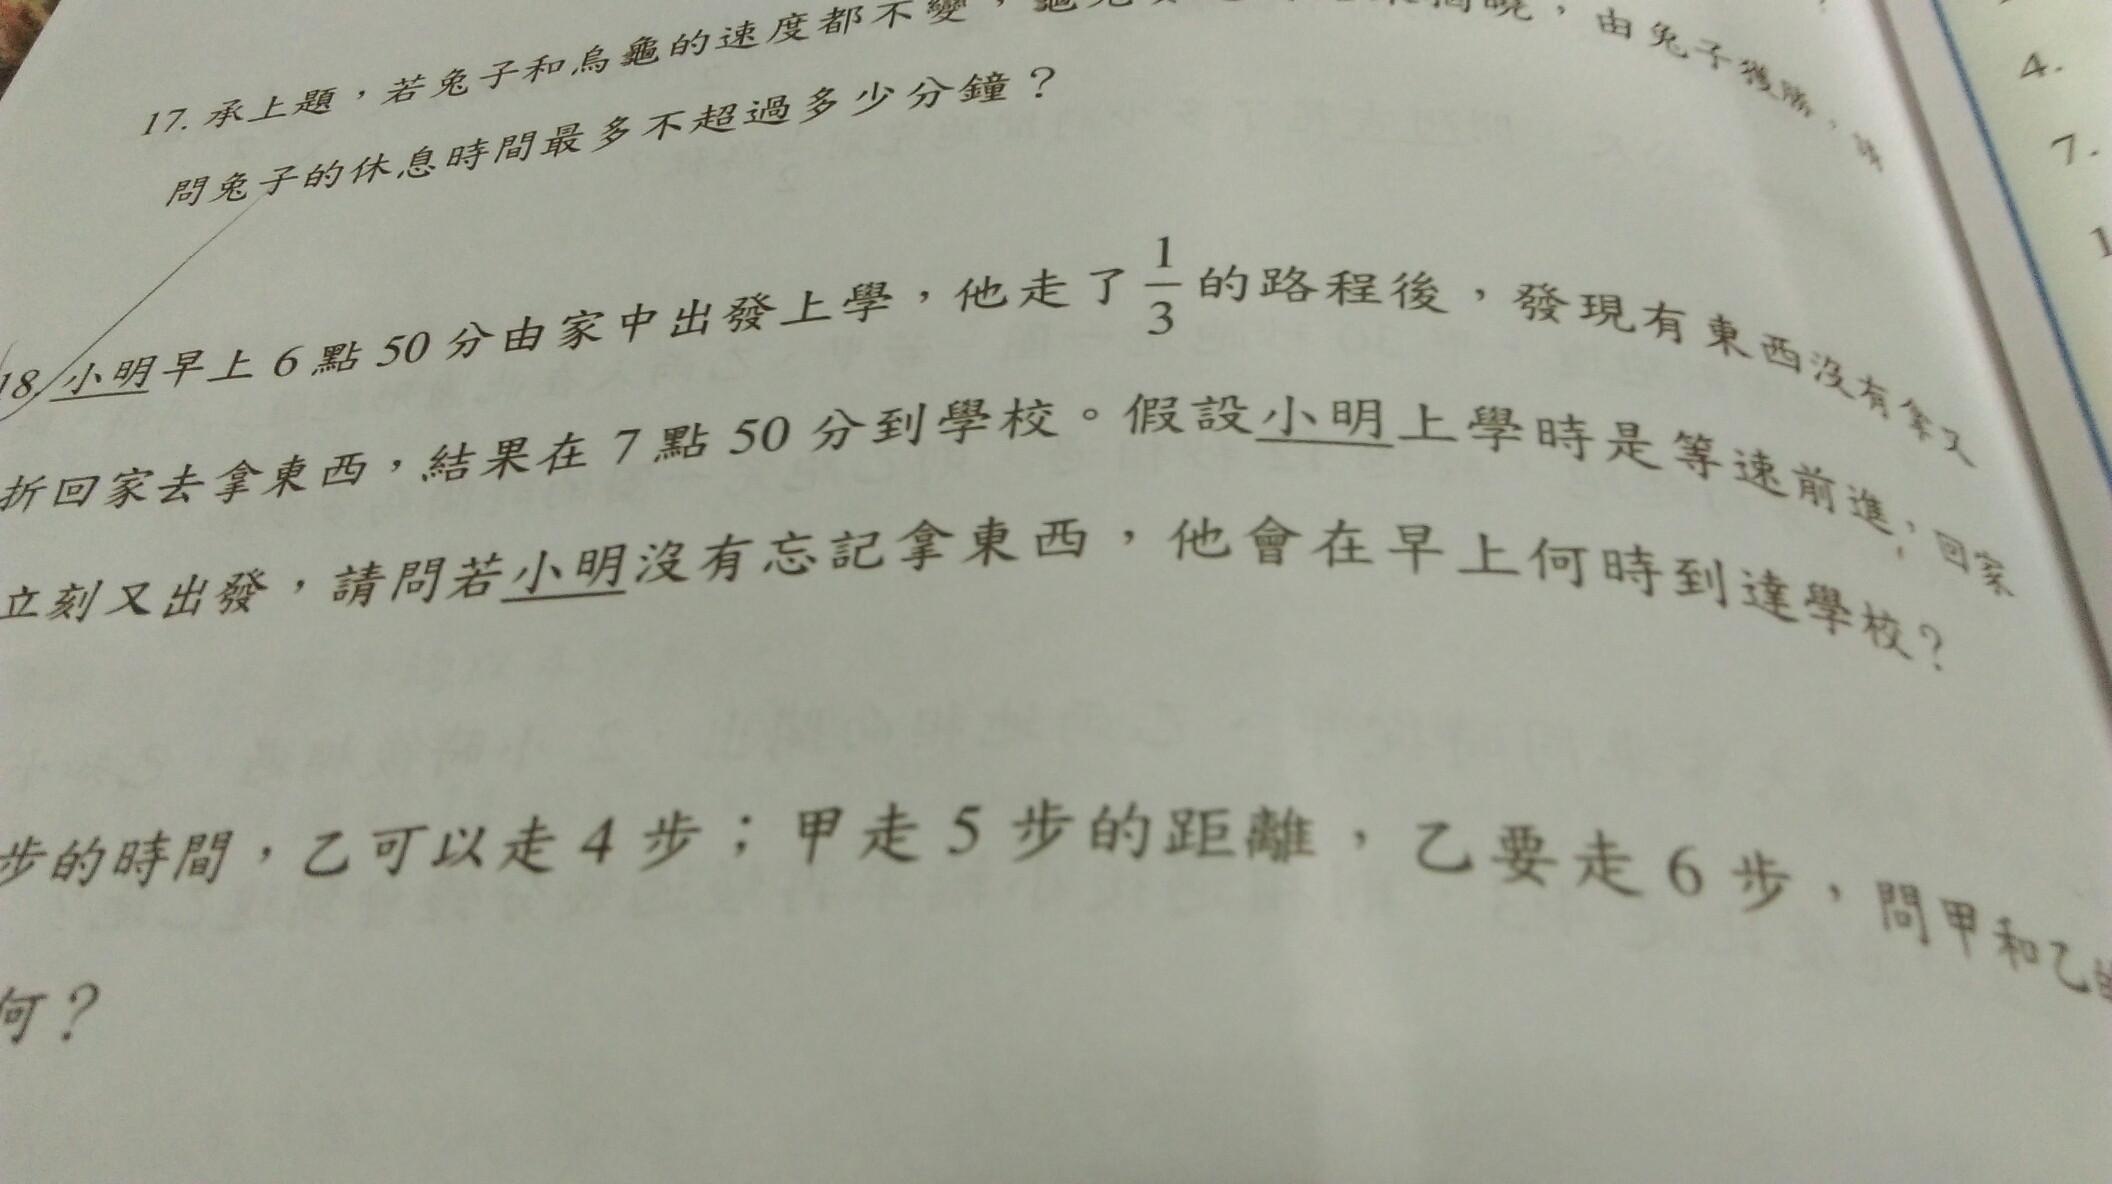 17. 承上題，若兔子和烏龜的速度都不變，龜兔 揭曉，由兔子獲勝，請
問兔子的休息時間最多不超過多少分鐘？
18. 小明早上 6 點 50 分由家中出發上學，他走了 1/3 的路程後，發現有東西沒有拿又
折回家去拿東西，結果在 7 點 50 分到學校。假設小明上學時是等速前進，回家
立刻又出發，請問若小明沒有忘記拿東西，他會在早上何時到達學校？
步的時間，乙可以走 4 步；甲走 5 步的距離，乙要走 6 步，問甲和乙的
何？
4.
7.
1